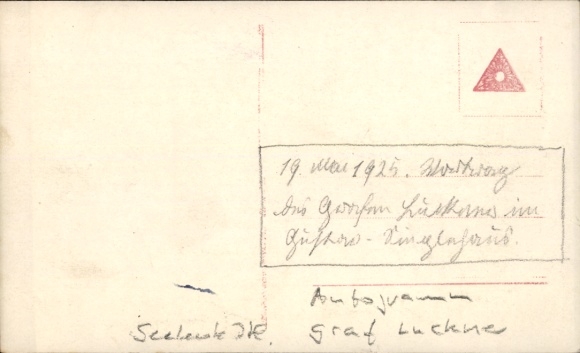 19. Mai 1925. Vortrag
des Grafen Luckner im
Gustav-Singlehaus.
Autogramm
Graf Luckner